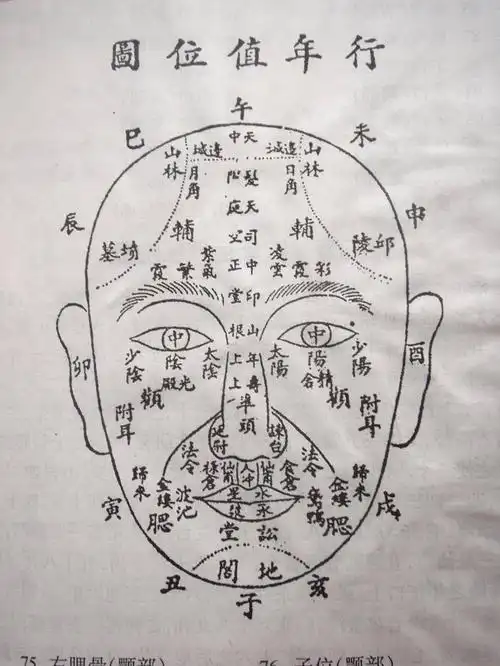 圖位值年行
午
巳
未
中天
山林
邊城
邊城
山林
月角
日角
髮
辰
申
庭天
輔
空司
輔
墓
紫氣
正中
凌雲
邱陵
霞
繁
堂印
霞
彩
根山
卯
中
中
酉
少陰
陰
太陰
上年
太陽
陽
少陽
光殿
精舍
上壽
顴
顴
附耳
準頭
附耳
廷尉
諫台
法令
法令
歸來
祿倉
人冲
食倉
歸來
金縷
波池
星
水
鵞鴨
金縷
寅
腮
腮
戌
堂訟
閣地
丑
亥
子
75 左腮骨(顴部)
76 子位(顴部)